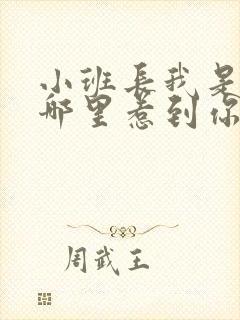 小班长我是
哪里惹到你
周武王